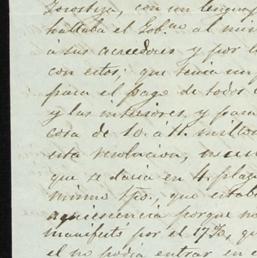 Gorostiza, con un lenguaj
hallaba el Gob.no al mis
a sus acreedores y por l
con estos; que tenia un
para el pago de todos
y los interiores, y para
cosa de 10. a 11. millon
esta resolucion,
que se daria en 4. plazo
mismo tpo., que estab
aquiescencia porque no
manifesto por el 17%, qu
el no podia entrar en